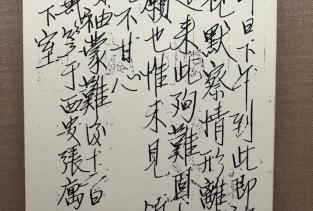 日下午到此即
默察情形離
來此殉難固
願也惟未見
不甘心
袖蒙難後十一日
笠于西安張寓
下室